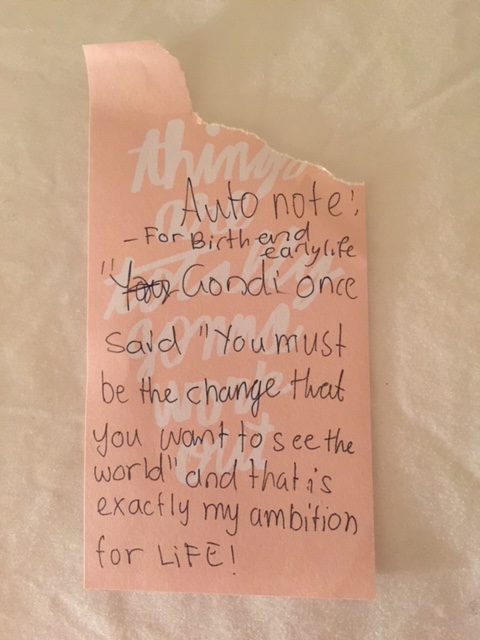 things
are
totally
gonna
work
out
Auto note!
- For Birth and
early life
" Gondi once
said "You must
be the change that
you want to see the
world" and that is
exactly my ambition
for LiFE!